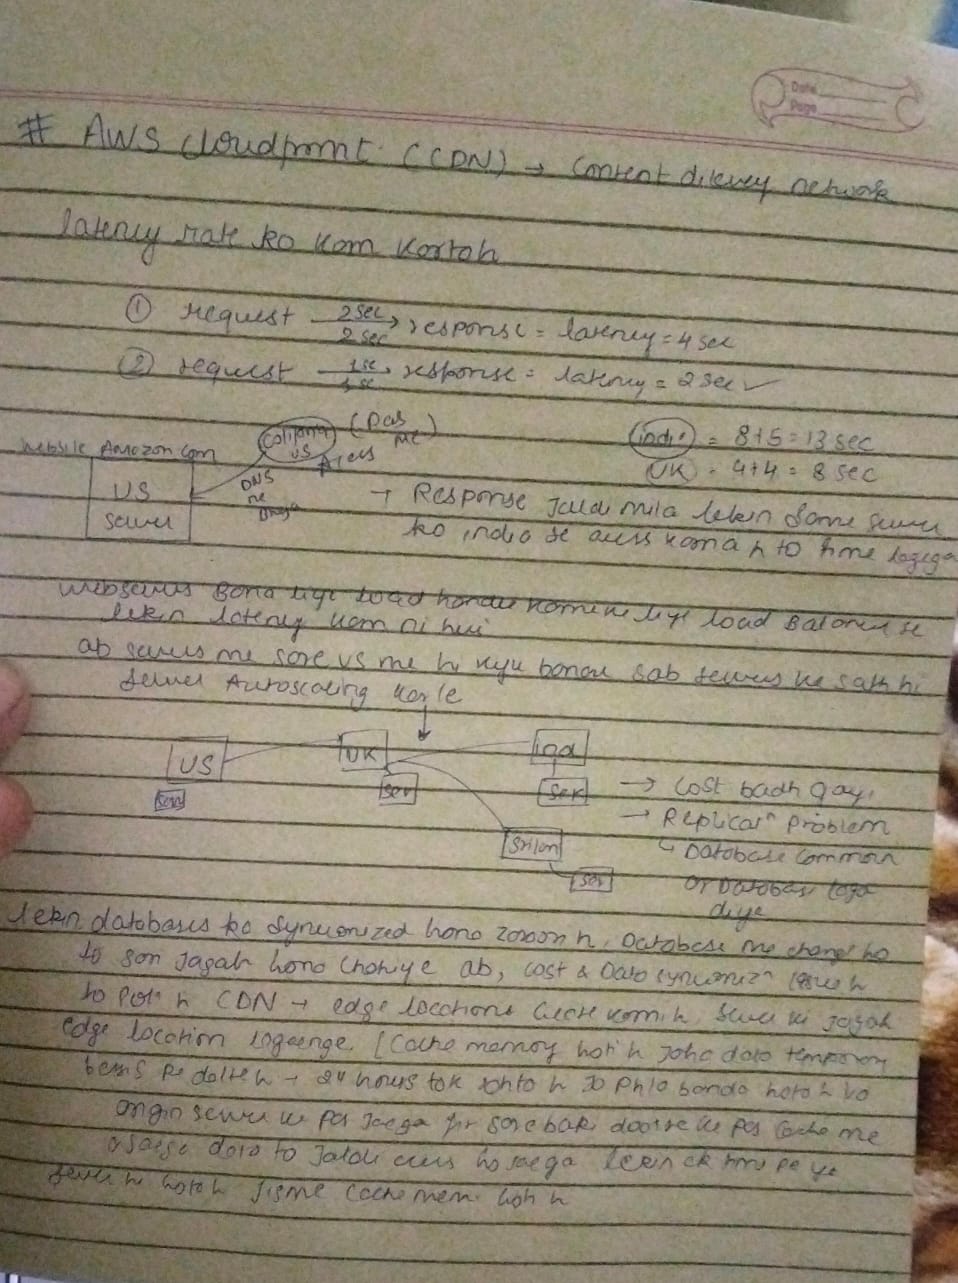 Date
Page
# AWS Cloudfront (CDN) → Content dilevey network
latency rate ko kam kartah
① request 2 sec response = latency = 4 sec
2 sec
② request 1 se response = latency = 2 sec ✓
1 se
website Amazon.com
US
server
US
(Pas me)
DNS ne
India = 8+5 = 13 sec
UK = 4+4 = 8 sec
→ Response jaldi mila lekin same server
ko india se access karna h to time lagega
webservers bana liye load handle karne ke liye load balancer se
lekin latency kam ni hui
ab servers me sare US me hi kyu banau sab servers ke sath hi
server Autoscaling karle
US
UK
ind
ser
ser
ser
Srilan
ser
→ Cost badh gayi
→ Replicaⁿ Problem
↳ Database common
or Database laga
diye
lekin databases ko syncronized hona h, Database me change ho
to jagah hona chahiye ab, cost & Data issue h
to h CDN → edge locations karni h, server ki jagah
edge location lagaenge [Cache memory hoti h jaha data temporary
basis pe dalte h → 24 hours tak rahta h jo phla banda hota h vo
origin server ke pas jaega fir sare baki ke pas Cache me
data to jaldi access ho jaega lekin pe ye
server hi hota h jisme cache mem. hoti h